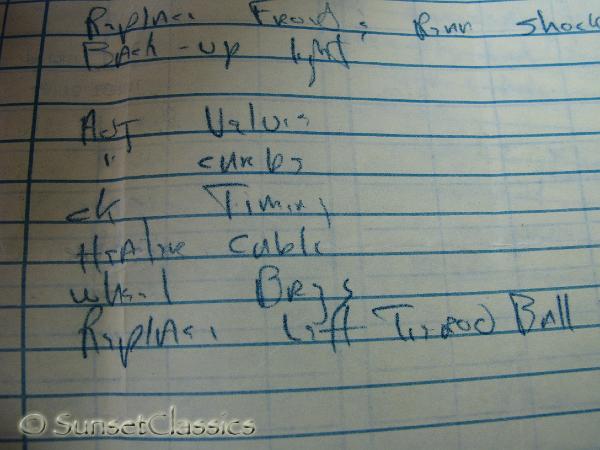 Replace Front & Rear shock
Back-up light
Adj Valves
" carbs
ck Timing
cable
wheel Brgs
Replace left Tierod Ball
© SunsetClassics